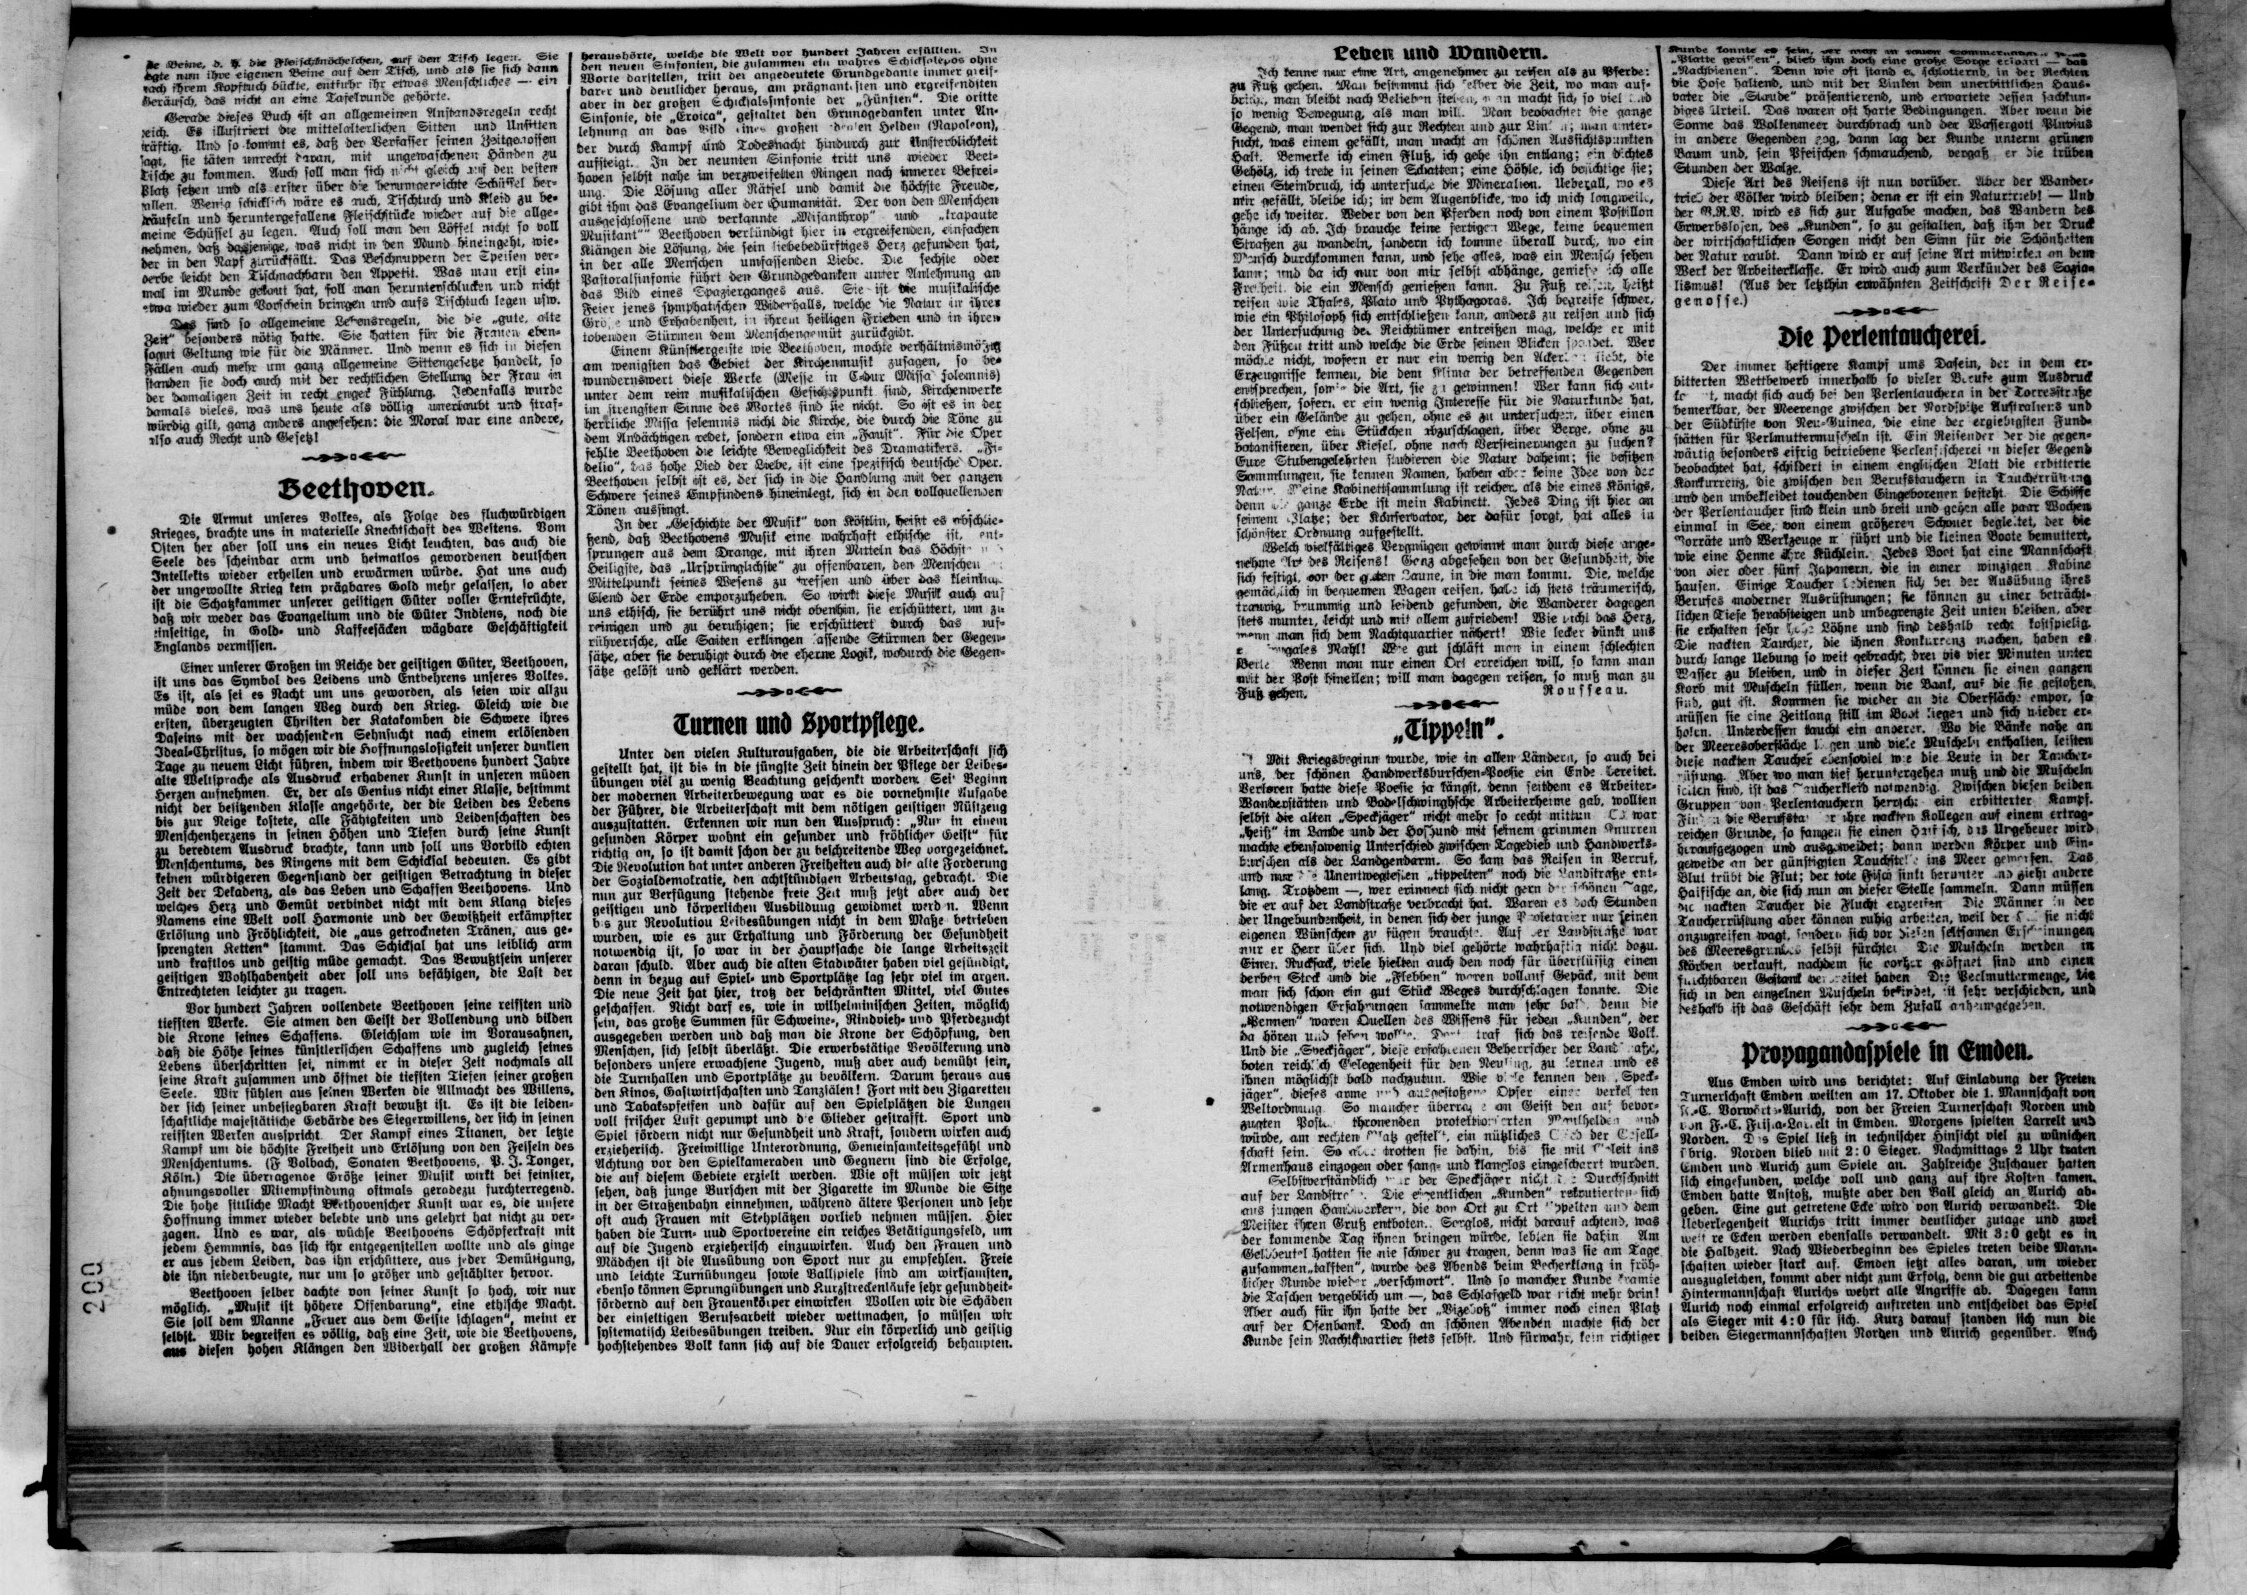 die Beine, d. h. die Fleischknöchelchen, auf den Tisch legen. Sie
legte nun ihre eigenen Beine auf den Tisch, und als sie sich dann
nach ihrem Kopftuch bückte, entfuhr ihr etwas Menschliches — ein
Geräusch, das nicht an eine Tafelrunde gehörte.
Gerade dieses Buch ist an allgemeinen Anstandsregeln recht
reich. Es illustriert die mittelalterlichen Sitten und Unsitten
kräftig. Und so kommt es, daß der Verfasser seinen Zeitgenossen
sagt, sie täten unrecht daran, mit ungewaschenen Händen zu
Tische zu kommen. Auch soll man sich nicht gleich auf den besten
Platz setzen und als erster über die herumgereichte Schüssel her-
fallen. Wenig schicklich wäre es auch, Tischtuch und Kleid zu be-
träufeln und heruntergefallene Fleischstücke wieder auf die allge-
meine Schüssel zu legen. Auch soll man den Löffel nicht so voll
nehmen, daß dasjenige, was nicht in den Mund hineingeht, wie-
der in den Napf zurückfällt. Das Beschnuppern der Speisen ver-
derbe leicht den Tischnachbarn den Appetit. Was man erst ein-
mal im Munde gekaut hat, soll man herunterschlucken und nicht
etwa wieder zum Vorschein bringen und aufs Tischtuch legen usw.
Das sind so allgemeine Lebensregeln, die die „gute, alte
Zeit" besonders nötig hatte. Sie hatten für die Frauen eben-
sogut Geltung wie für die Männer. Und wenn es sich in diesen
Fällen auch mehr um ganz allgemeine Sittengesetze handelt, so
standen sie doch auch mit der rechtlichen Stellung der Frau in
der damaligen Zeit in recht enger Fühlung. Jedenfalls wurde
damals vieles, was uns heute als völlig unerlaubt und straf-
würdig gilt, ganz anders angesehen: die Moral war eine andere,
also auch Recht und Gesetz!
Beethoven.
Die Armut unseres Volkes, als Folge des fluchwürdigen
Krieges, brachte uns in materielle Knechtschaft des Westens. Vom
Osten her aber soll uns ein neues Licht leuchten, das auch die
Seele des scheinbar arm und heimatlos gewordenen deutschen
Intellekts wieder erhellen und erwärmen würde. Hat uns auch
der ungewollte Krieg kein prägbares Gold mehr gelassen, so aber
ist die Schatzkammer unserer geistigen Güter voller Erntefrüchte,
daß wir weder das Evangelium und die Güter Indiens, noch die
einseitige, in Gold- und Kaffeesäcken wägbare Geschäftigkeit
Englands vermissen.
Einer unserer Großen im Reiche der geistigen Güter, Beethoven,
ist uns das Symbol des Leidens und Entbehrens unseres Volkes.
Es ist, als sei es Nacht um uns geworden, als seien wir allzu
müde von dem langen Weg durch den Krieg. Gleich wie die
ersten, überzeugten Christen der Katakomben die Schwere ihres
Daseins mit der wachsenden Sehnsucht nach einem erlösenden
Ideal-Christus, so mögen wir die Hoffnungslosigkeit unserer dunklen
Tage zu neuem Licht führen, indem wir Beethovens hundert Jahre
alte Weltsprache als Ausdruck erhabener Kunst in unseren müden
Herzen aufnehmen. Er, der als Genius nicht einer Klasse, bestimmt
nicht der besitzenden Klasse angehörte, der die Leiden des Lebens
bis zur Neige kostete, alle Fähigkeiten und Leidenschaften des
Menschenherzens in seinen Höhen und Tiefen durch seine Kunst
zu beredtem Ausdruck brachte, kann und soll uns Vorbild echten
Menschentums, des Ringens mit dem Schicksal bedeuten. Es gibt
keinen würdigeren Gegenstand der geistigen Betrachtung in dieser
Zeit der Dekadenz, als das Leben und Schaffen Beethovens. Und
welches Herz und Gemüt verbindet nicht mit dem Klang dieses
Namens eine Welt voll Harmonie und der Gewißheit erkämpfter
Erlösung und Fröhlichkeit, die „aus getrockneten Tränen, aus ge-
sprengten Ketten" stammt. Das Schicksal hat uns leiblich arm
und kraftlos und geistig müde gemacht. Das Bewußtsein unserer
geistigen Wohlhabenheit aber soll uns befähigen, die Last der
Entrechteten leichter zu tragen.
Vor hundert Jahren vollendete Beethoven seine reifsten und
tiefsten Werke. Sie atmen den Geist der Vollendung und bilden
die Krone seines Schaffens. Gleichsam wie im Vorausahnen,
daß die Höhe seines künstlerischen Schaffens und zugleich seines
Lebens überschritten sei, nimmt er in dieser Zeit nochmals all
seine Kraft zusammen und öffnet die tiefsten Tiefen seiner großen
Seele. Wir fühlen aus seinen Werken die Allmacht des Willens,
der sich seiner unbesiegbaren Kraft bewußt ist. Es ist die leiden-
schaftliche majestätische Gebärde des Siegerwillens, der sich in seinen
reifsten Werken ausspricht. Der Kampf eines Titanen, der letzte
Kampf um die höchste Freiheit und Erlösung von den Fesseln des
Menschentums. (F Volbach, Sonaten Beethovens, P. J. Tonger,
Köln.) Die überragende Größe seiner Musik wirkt bei feinster,
ahnungsvoller Mitempfindung oftmals geradezu furchterregend.
Die hohe sittliche Macht Beethovenscher Kunst war es, die unsere
Hoffnung immer wieder belebte und uns gelehrt hat nicht zu ver-
zagen. Und es war, als wüchse Beethovens Schöpferkraft mit
jedem Hemmnis, das sich ihr entgegenstellen wollte und als ginge
er aus jedem Leiden, das ihn erschüttere, aus jeder Demütigung,
die ihn niederbeugte, nur um so größer und gestählter hervor.
Beethoven selber dachte von seiner Kunst so hoch, wir nur
möglich. „Musik ist höhere Offenbarung", eine ethische Macht.
Sie soll dem Manne „Feuer aus dem Geiste schlagen", meint er
selbst. Wir begreifen es völlig, daß eine Zeit, wie die Beethovens,
aus diesen hohen Klängen den Widerhall der großen Kämpfe
heraushörte, welche die Welt vor hundert Jahren erfüllten. In
den neuen Sinfonien, die zusammen ein wahres Schicksalepos ohne
Worte darstellen, tritt der angedeutete Grundgedanke immer greif-
barer und deutlicher heraus, am prägnantesten und ergreifendsten
aber in der großen Schicksalssinfonie der „Fünften". Die dritte
Sinfonie, die „Eroica", gestaltet den Grundgedanken unter An-
lehnung an das Bild eines großen idealen Helden (Napoleon),
der durch Kampf und Todesnacht hindurch zur Unsterblichkeit
aufsteigt. In der neunten Sinfonie tritt uns wieder Beet-
hoven selbst nahe im verzweifelten Ringen nach innerer Befrei-
ung. Die Lösung aller Rätsel und damit die höchste Freude,
gibt ihm das Evangelium der Humanität. Der von den Menschen
ausgeschlossene und verkannte „Misanthrop" und „trapaute
Musikant"" Beethoven verkündigt hier in ergreifenden, einfachen
Klängen die Lösung, die sein liebebedürftiges Herz gefunden hat,
in der alle Menschen umfassenden Liebe. Die sechste oder
Pastoralsinfonie führt den Grundgedanken unter Anlehnung an
das Bild eines Spazierganges aus. Sie ist die musikalische
Feier jenes symphatischen Widerhalls, welche die Natur in ihrer
Größe und Erhabenheit, in ihrem heiligen Frieden und in ihren
tobenden Stürmen dem Menschengemüt zurückgibt.
Einem Künstlergeiste wie Beethoven, mochte verhältnismäßig
am wenigsten das Gebiet der Kirchenmusik zusagen, so be-
wundernswert diese Werke (Messe in C-dur Missa solemnis)
unter dem rein musikalischen Gesichtspunkt sind, Kirchenwerke
im strengsten Sinne des Wortes sind sie nicht. So ist es in der
herrliche Missa solemnis nicht die Kirche, die durch die Töne zu
dem Andächtigen redet, sondern etwa ein „Faust". Für die Oper
fehlte Beethoven die leichte Beweglichkeit des Dramatikers. „Fi-
delio", das hohe Lied der Liebe, ist eine spezifisch deutsche Oper.
Beethoven selbst ist es, der sich in die Handlung mit der ganzen
Schwere seines Empfindens hineinlegt, sich in den vollquellenden
Tönen aussingt.
In der „Geschichte der Musik" von Köstlin, heißt es abschlie-
ßend, daß Beethovens Musik eine wahrhaft ethische ist, ent-
sprungen aus dem Drange, mit ihren Mitteln das Höchste und
Heiligste, das „Ursprünglichste" zu offenbaren, den Menschen
Mittelpunkt seines Wesens zu treffen und über das kleinliche
Elend der Erde emporzuheben. So wirkt diese Musik auch auf
uns ethisch, sie berührt uns nicht obenhin, sie erschüttert, um zu
reinigen und zu beruhigen; sie erschüttert durch das auf-
rührerische, alle Saiten erklingen lassende Stürmen der Gegen-
sätze, aber sie beruhigt durch die eherne Logik, wodurch die Gegen-
sätze gelöst und geklärt werden.
Turnen und Sportpflege.
Unter den vielen Kulturaufgaben, die die Arbeiterschaft sich
gestellt hat, ist bis in die jüngste Zeit hinein der Pflege der Leibes-
übungen viel zu wenig Beachtung geschenkt worden. Seit Beginn
der modernen Arbeiterbewegung war es die vornehmste Aufgabe
der Führer, die Arbeiterschaft mit dem nötigen geistigen Rüstzeug
auszustatten. Erkennen wir nun den Ausspruch: „Nur in einem
gesunden Körper wohnt ein gesunder und fröhlicher Geist" für
richtig an, so ist damit schon der zu beschreitende Weg vorgezeichnet.
Die Revolution hat unter anderen Freiheiten auch die alte Forderung
der Sozialdemokratie, den achtstündigen Arbeitstag, gebracht. Die
nun zur Verfügung stehende freie Zeit muß jetzt aber auch der
geistigen und körperlichen Ausbildung gewidmet werden. Wenn
bis zur Revolution Leibesübungen nicht in dem Maße betrieben
wurden, wie es zur Erhaltung und Förderung der Gesundheit
notwendig ist, so war in der Hauptsache die lange Arbeitszeit
daran schuld. Aber auch die alten Stadtväter haben viel gesündigt,
denn in bezug auf Spiel- und Sportplätze lag sehr viel im argen.
Die neue Zeit hat hier, trotz der beschränkten Mittel, viel Gutes
geschaffen. Nicht darf es, wie in wilhelminischen Zeiten, möglich
sein, das große Summen für Schweine-, Rindvieh- und Pferdezucht
ausgegeben werden und daß man die Krone der Schöpfung, den
Menschen, sich selbst überläßt. Die erwerbstätige Bevölkerung und
besonders unsere erwachsene Jugend, muß aber auch bemüht sein,
die Turnhallen und Sportplätze zu bevölkern. Darum heraus aus
den Kinos, Gastwirtschaften und Tanzsälen! Fort mit den Zigaretten
und Tabakspfeifen und dafür auf den Spielplätzen die Lungen
voll frischer Luft gepumpt und die Glieder gestrafft. Sport und
Spiel fördern nicht nur Gesundheit und Kraft, sondern wirken auch
erzieherisch. Freiwillige Unterordnung, Gemeinsamkeitsgefühl und
Achtung vor den Spielkameraden und Gegnern sind die Erfolge,
die auf diesem Gebiete erzielt werden. Wie oft müssen wir jetzt
sehen, daß junge Burschen mit der Zigarette im Munde die Sitze
in der Straßenbahn einnehmen, während ältere Personen und sehr
oft auch Frauen mit Stehplätzen vorlieb nehmen müssen. Hier
haben die Turn- und Sportvereine ein reiches Betätigungsfeld, um
auf die Jugend erzieherisch einzuwirken. Auch den Frauen und
Mädchen ist die Ausübung von Sport nur zu empfehlen. Freie
und leichte Turnübungen sowie Ballspiele sind am wirksamsten,
ebenso können Sprungübungen und Kurzstreckenläufe sehr gesundheit-
fördernd auf den Frauenkörper einwirken Wollen wir die Schäden
der einseitigen Berufsarbeit wieder wettmachen, so müssen wir
systematisch Leibesübungen treiben. Nur ein körperlich und geistig
hochstehendes Volk kann sich auf die Dauer erfolgreich behaupten.
Leben und Wandern.
Ich kenne nur eine Art, angenehmer zu reisen als zu Pferde:
zu Fuß gehen. Man bestimmt sich selber die Zeit, wo man auf-
bricht, man bleibt nach Belieben stehen, man macht sich so viel und
so wenig Bewegung, als man will. Man beobachtet die ganze
Gegend, man wendet sich zur Rechten und zur Linken; man unter-
sucht, was einem gefällt, man macht an schönen Aussichtspunkten
Halt. Bemerke ich einen Fluß, ich gehe ihn entlang; ein dichtes
Gehölz, ich trete in seinen Schatten; eine Höhle, ich besichtige sie;
einen Steinbruch, ich untersuche die Mineralien. Ueberall, wo es
mir gefällt, bleibe ich; in dem Augenblicke, wo ich mich langweile,
gehe ich weiter. Weder von den Pferden noch von einem Postillon
hänge ich ab. Ich brauche keine fertigen Wege, keine bequemen
Straßen zu wandeln, sondern ich komme überall durch, wo ein
Mensch durchkommen kann, und sehe alles, was ein Mensch sehen
kann; und da ich nur von mir selbst abhänge, genieße ich alle
Freiheit, die ein Mensch genießen kann. Zu Fuß reisen, heißt
reisen wie Thales, Plato und Pythagoras. Ich begreife schwer,
wie ein Philosoph sich entschließen kann, anders zu reisen und sich
der Untersuchung der Reichtümer entreißen mag, welche er mit
den Füßen tritt und welche die Erde seinen Blicken spendet. Wer
möchte nicht, wofern er nur ein wenig den Ackerbau liebt, die
Erzeugnisse kennen, die dem Klima der betreffenden Gegenden
entsprechen, sowie die Art, sie zu gewinnen! Wer kann sich ent-
schließen, sofern er ein wenig Interesse für die Naturkunde hat,
über ein Gelände zu gehen, ohne es zu untersuchen, über einen
Felsen, ohne ein Stückchen abzuschlagen, über Berge, ohne zu
botanisieren, über Kiesel, ohne nach Versteinerungen zu suchen?
Eure Stubengelehrten studieren die Natur daheim; sie besitzen
Sammlungen, sie kennen Namen, haben aber keine Idee von der
Natur. Meine Kabinettsammlung ist reicher, als die eines Königs,
denn die ganze Erde ist mein Kabinett. Jedes Ding ist hier an
seinem Platze; der Konservator, der dafür sorgt, hat alles in
schönster Ordnung aufgestellt.
Welch vielfältiges Vergnügen gewinnt man durch diese ange-
nehme Art des Reisens! Ganz abgesehen von der Gesundheit, die
sich festigt, von der guten Laune, in die man kommt. Die, welche
gemächlich in bequemen Wagen reisen, habe ich stets träumerisch,
traurig, brummig und leidend gefunden, die Wanderer dagegen
stets munter, leicht und mit allem zufrieden! Wie lacht das Herz,
wenn man sich dem Nachtquartier nähert! Wie lecker dünkt uns
e frugales Mahl! Wie gut schläft man in einem schlechten
Bette Wenn man nur einen Ort erreichen will, so kann man
mit der Post hineilen; will man dagegen reisen, so muß man zu
Fuß gehen. Rousseau.
„Tippeln".
Mit Kriegsbeginn wurde, wie in allen Ländern, so auch bei
uns, der schönen Handwerksburschen-Poesie ein Ende bereitet.
Verloren hatte diese Poesie ja längst, denn seitdem es Arbeiter-
Wanderstätten und Bodelschwinghsche Arbeiterheime gab, wollten
selbst die alten „Speckjäger" nicht mehr so recht mittun Es war
„heiß" im Lande und der Hofhund mit seinem grimmen Knurren
machte ebensowenig Unterschied zwischen Tagedieb und Handwerks-
burschen als der Landgendarm. So kam das Reisen in Verruf,
und nur die Unentwegtesten „tippelten" noch die Landstraße ent-
lang. Trotzdem —, wer erinnert sich nicht gern der schönen Tage,
die er auf der Landstraße verbracht hat. Waren es doch Stunden
der Ungebundenheit, in denen sich der junge Proletarier nur seinen
eigenen Wünschen zu fügen brauchte. Auf der Landstraße war
nur er Herr über sich. Und viel gehörte wahrhaftig nicht dazu.
Einen Rucksack, viele hielten auch den noch für überflüssig einen
derben Stock und die „Flebben" waren vollauf Gepäck, mit dem
man sich schon ein gut Stück Weges durchschlagen konnte. Die
notwendigen Erfahrungen sammelte man sehr bald, denn die
„Pennen" waren Quellen des Wissens für jeden „Kunden", der
da hören und sehen wollte. Dort traf sich das reisende Volk.
Und die „Speckjäger", diese erfahrenen Beherrscher der Landstraße,
boten reichlich Gelegenheit für den Neuling, zu lernen und es
ihnen möglichst bald nachzutun. Wie viele kennen den „Speck-
jäger", dieses arme und ausgestoßene Opfer einer verkehrten
Weltordnung. So mancher überragte an Geist den auf bevor-
zugten Posten thronenden protektionierten Maulhelden und
würde, am rechten Platz gestellt, ein nützliches Glied der Gesell-
schaft sein. So aber trotten sie dahin, bis sie mit Geleit ins
Armenhaus einzogen oder sang- und klanglos eingescharrt wurden.
Selbstverständlich war der Speckjäger nicht der Durchschnitt
auf der Landstraße. Die eigentlichen „Kunden" rekrutierten sich
aus jungen Handwerkern, die von Ort zu Ort tippelten und dem
Meister ihren Gruß entboten. Sorglos, nicht darauf achtend, was
der kommende Tag ihnen bringen würde, lebten sie dahin Am
Geldbeutel hatten sie nie schwer zu tragen, denn was sie am Tage
zusammen„talften", wurde des Abends beim Becherklang in fröh-
licher Runde wieder „verschmort". Und so mancher Kunde kramte
die Taschen vergeblich um —, das Schlafgeld war nicht mehr drin!
Aber auch für ihn hatte der „Vizeboß" immer noch einen Platz
auf der Ofenbank. Doch an schönen Abenden machte sich der
Kunde sein Nachtquartier stets selbst. Und fürwahr, kein richtiger
Kunde konnte es sein, der man in lauen
„Platte gerissen", blieb ihm doch eine große Sorge erspart — das
„Nachdienen". Denn wie oft stand er schlotternd, in der Rechten
die Hose haltend, und mit der Linken dem unerbittlichen Haus-
vater die „Staude" präsentierend, und erwartete dessen sachkun-
diges Urteil. Das waren oft harte Bedingungen. Aber wenn die
Sonne das Wolkenmeer durchbrach und der Wassergott Pluvius
in andere Gegenden zog, dann lag der Kunde unterm grünen
Baum und, sein Pfeifchen schmauchend, vergaß er die trüben
Stunden der Walze.
Diese Art des Reisens ist nun vorüber. Aber der Wander-
trieb der Völker wird bleiben; denn er ist ein Naturtrieb! — Und
der A.R.V. wird es sich zur Aufgabe machen, das Wandern des
Erwerbslosen, des „Kunden", so zu gestalten, daß ihm der Druck
der wirtschaftlichen Sorgen nicht den Sinn für die Schönheiten
der Natur raubt. Dann wird er auf seine Art mitwirken an dem
Werk der Arbeiterklasse. Er wird auch zum Verkünder des Sozia-
lismus! (Aus der letzthin erwähnten Zeitschrift Der Reise-
genosse.)
Die Perlentaucherei.
Der immer heftigere Kampf ums Dasein, der in dem er-
bitterten Wettbewerb innerhalb so vieler Berufe zum Ausdruck
kommt, macht sich auch bei den Perlentauchern in der Torresstraße
bemerkbar, der Meerenge zwischen der Nordspitze Australiens und
der Südküste von Neu-Guinea, die eine der ergiebigsten Fund-
stätten für Perlmuttermuscheln ist. Ein Reisender der die gegen-
wärtig besonders eifrig betriebene Perlenfischerei in dieser Gegend
beobachtet hat, schildert in einem englischen Blatt die erbitterte
Konkurrenz, die zwischen den Berufstauchern in Taucherrüstung
und den unbekleidet tauchenden Eingeborenen besteht. Die Schiffe
der Perlentaucher sind klein und breit und gehen alle paar Wochen
einmal in See, von einem größeren Schoner begleitet, der die
Vorräte und Werkzeuge mit führt und die kleinen Boote bemuttert,
wie eine Henne ihre Küchlein. Jedes Boot hat eine Mannschaft
von vier oder fünf Japanern, die in einer winzigen Kabine
hausen. Einige Taucher bedienen sich bei der Ausübung ihres
Berufes moderner Ausrüstungen; sie können zu einer beträcht-
lichen Tiefe herabsteigen und unbegrenzte Zeit unten bleiben, aber
sie erhalten sehr hohe Löhne und sind deshalb recht kostspielig.
Die nackten Taucher, die ihnen Konkurrenz machen, haben es
durch lange Uebung so weit gebracht, drei bis vier Minuten unter
Wasser zu bleiben, und in dieser Zeit können sie einen ganzen
Korb mit Muscheln füllen, wenn die Bank, auf die sie gestoßen
sind, gut ist. Kommen sie wieder an die Oberfläche empor, so
müssen sie eine Zeitlang still im Boot liegen und sich wieder er-
holen. Unterdessen taucht ein anderer. Wo die Bänke nahe an
der Meeresoberfläche liegen und viele Muscheln enthalten, leisten
diese nackten Taucher ebensoviel wie die Leute in der Taucher-
rüstung. Aber wo man tief heruntergehen muß und die Muscheln
selten sind, ist das Taucherkleid notwendig. Zwischen diesen beiden
Gruppen von Perlentauchern herrscht ein erbitterter Kampf.
Finden die Berufstaucher ihre nackten Kollegen auf einem ertrag-
reichen Grunde, so fangen sie einen Haifisch, das Ungeheuer wird
heraufgezogen und ausgeweidet; dann werden Körper und Ein-
geweide an der günstigsten Tauchstelle ins Meer geworfen. Das
Blut trübt die Flut; der tote Fisch sinkt herunter und zieht andere
Haifische an, die sich nun an dieser Stelle sammeln. Dann müssen
die nackten Taucher die Flucht ergreifen Die Männer in der
Taucherrüstung aber können ruhig arbeiten, weil der Hai sie nicht
anzugreifen wagt, sondern sich vor diesen seltsamen Erscheinungen
des Meeresgrundes selbst fürchtet Die Muscheln werden in
Körben verkauft, nachdem sie vorher geöffnet sind und einen
furchtbaren Gestank verbreitet haben Die Perlmuttermenge, die
sich in den einzelnen Muscheln befindet, ist sehr verschieden, und
deshalb ist das Geschäft sehr dem Zufall anheimgegeben.
Propagandaspiele in Emden.
Aus Emden wird uns berichtet: Auf Einladung der Freien
Turnerschaft Emden weilten am 17. Oktober die 1. Mannschaft von
F.-C. Vorwärts-Aurich, von der Freien Turnerschaft Norden und
von F.-C. Frisia-Larrelt in Emden. Morgens spielten Larrelt und
Norden. Das Spiel ließ in technischer Hinsicht viel zu wünschen
übrig. Norden blieb mit 2:0 Sieger. Nachmittags 2 Uhr traten
Emden und Aurich zum Spiele an. Zahlreiche Zuschauer hatten
sich eingefunden, welche voll und ganz auf ihre Kosten kamen.
Emden hatte Anstoß, mußte aber den Ball gleich an Aurich ab-
geben. Eine gut getretene Ecke wird von Aurich verwandelt. Die
Ueberlegenheit Aurichs tritt immer deutlicher zutage und zwei
weitere Ecken werden ebenfalls verwandelt. Mit 3:0 geht es in
die Halbzeit. Nach Wiederbeginn des Spieles treten beide Mann-
schaften wieder stark auf. Emden setzt alles daran, um wieder
auszugleichen, kommt aber nicht zum Erfolg, denn die gut arbeitende
Hintermannschaft Aurichs wehrt alle Angriffe ab. Dagegen kann
Aurich noch einmal erfolgreich auftreten und entscheidet das Spiel
als Sieger mit 4:0 für sich. Kurz darauf standen sich nun die
beiden Siegermannschaften Norden und Aurich gegenüber. Auch
200